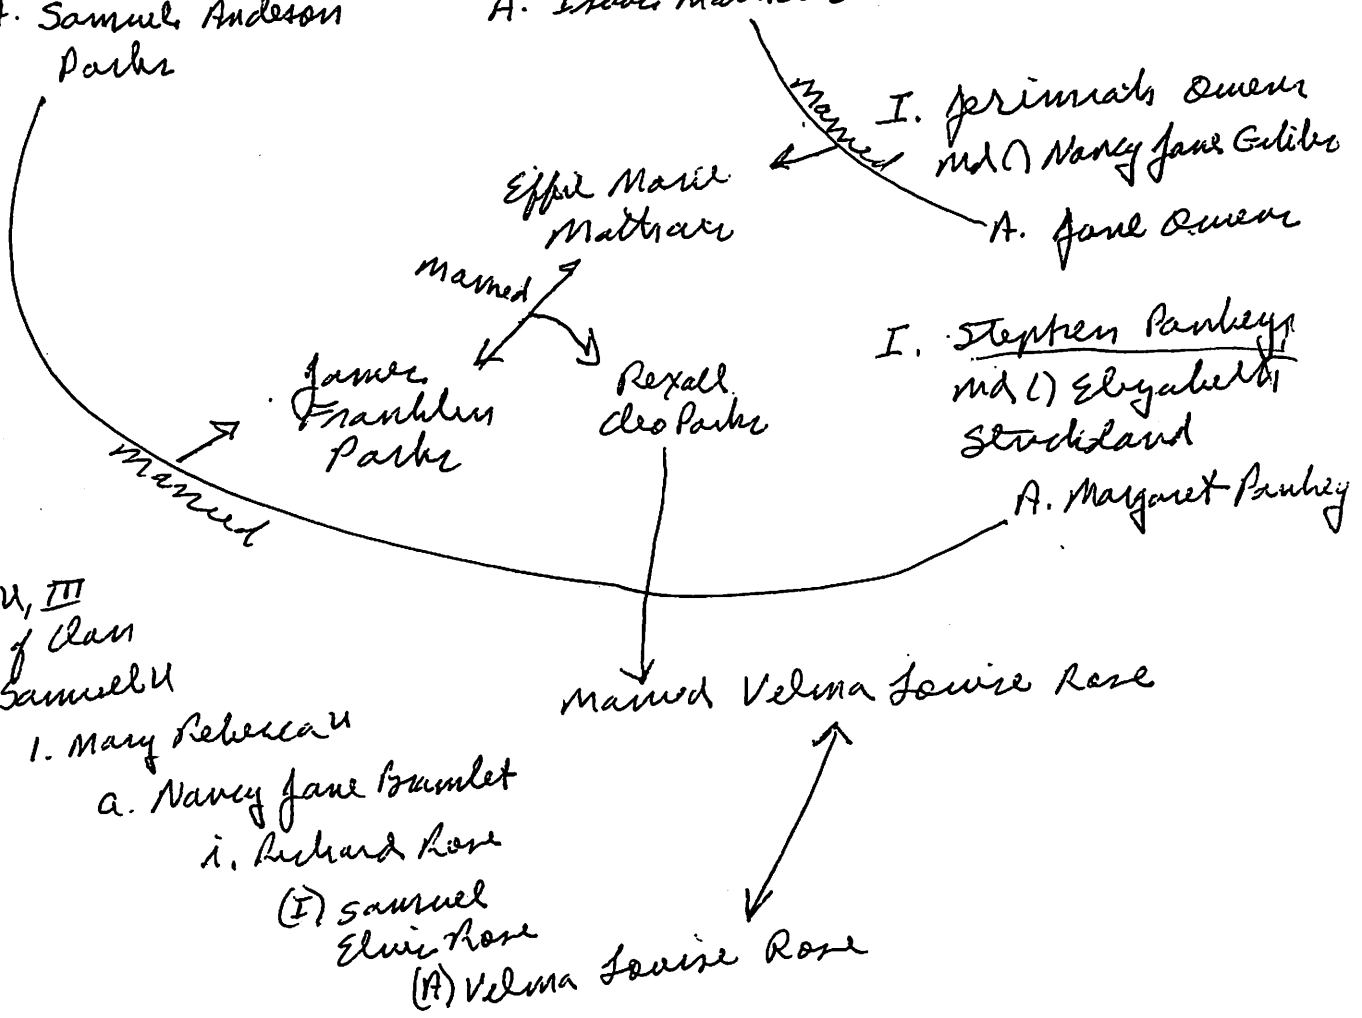 A. Samuel Andeson
Parks
A. Isaac
Married
I. Jerimiah Owens
md () Nancy Jane
A. Jane Owens
Effie Marie
Mathews
Married
James
Franklin
Parks
Rexall
Cleo Parks
I. Stephen Pankey,
md () Elizabeth
Strickland
A. Margaret Pankey
Married
u, III
of Clan
Samuel u
1. Mary Rebecca u
a. Nancy Jane Bramlet
i. Richard Rose
(I) Samuel
Elvis Rose
(A) Velma Louise Rose
Married Velma Louise Rose